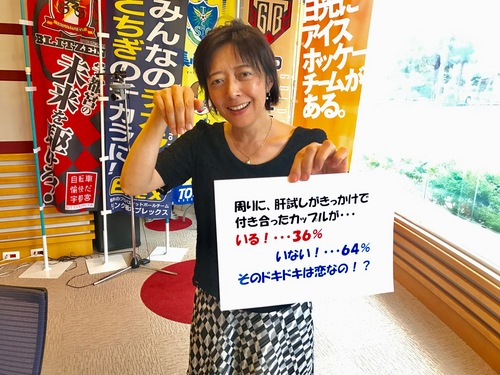 BLITZEN
宇都宮の
未来を駆けろ。
自転車
愉快だ
宇都宮
みんなの
とちぎのチカラに!
日光に
アイス
ホッケー
チームが
ある。
周りに、肝試しがきっかけで
付き合ったカップルが・・・
いる!・・・36%
いない!・・・64%
そのドキドキは恋なの!?